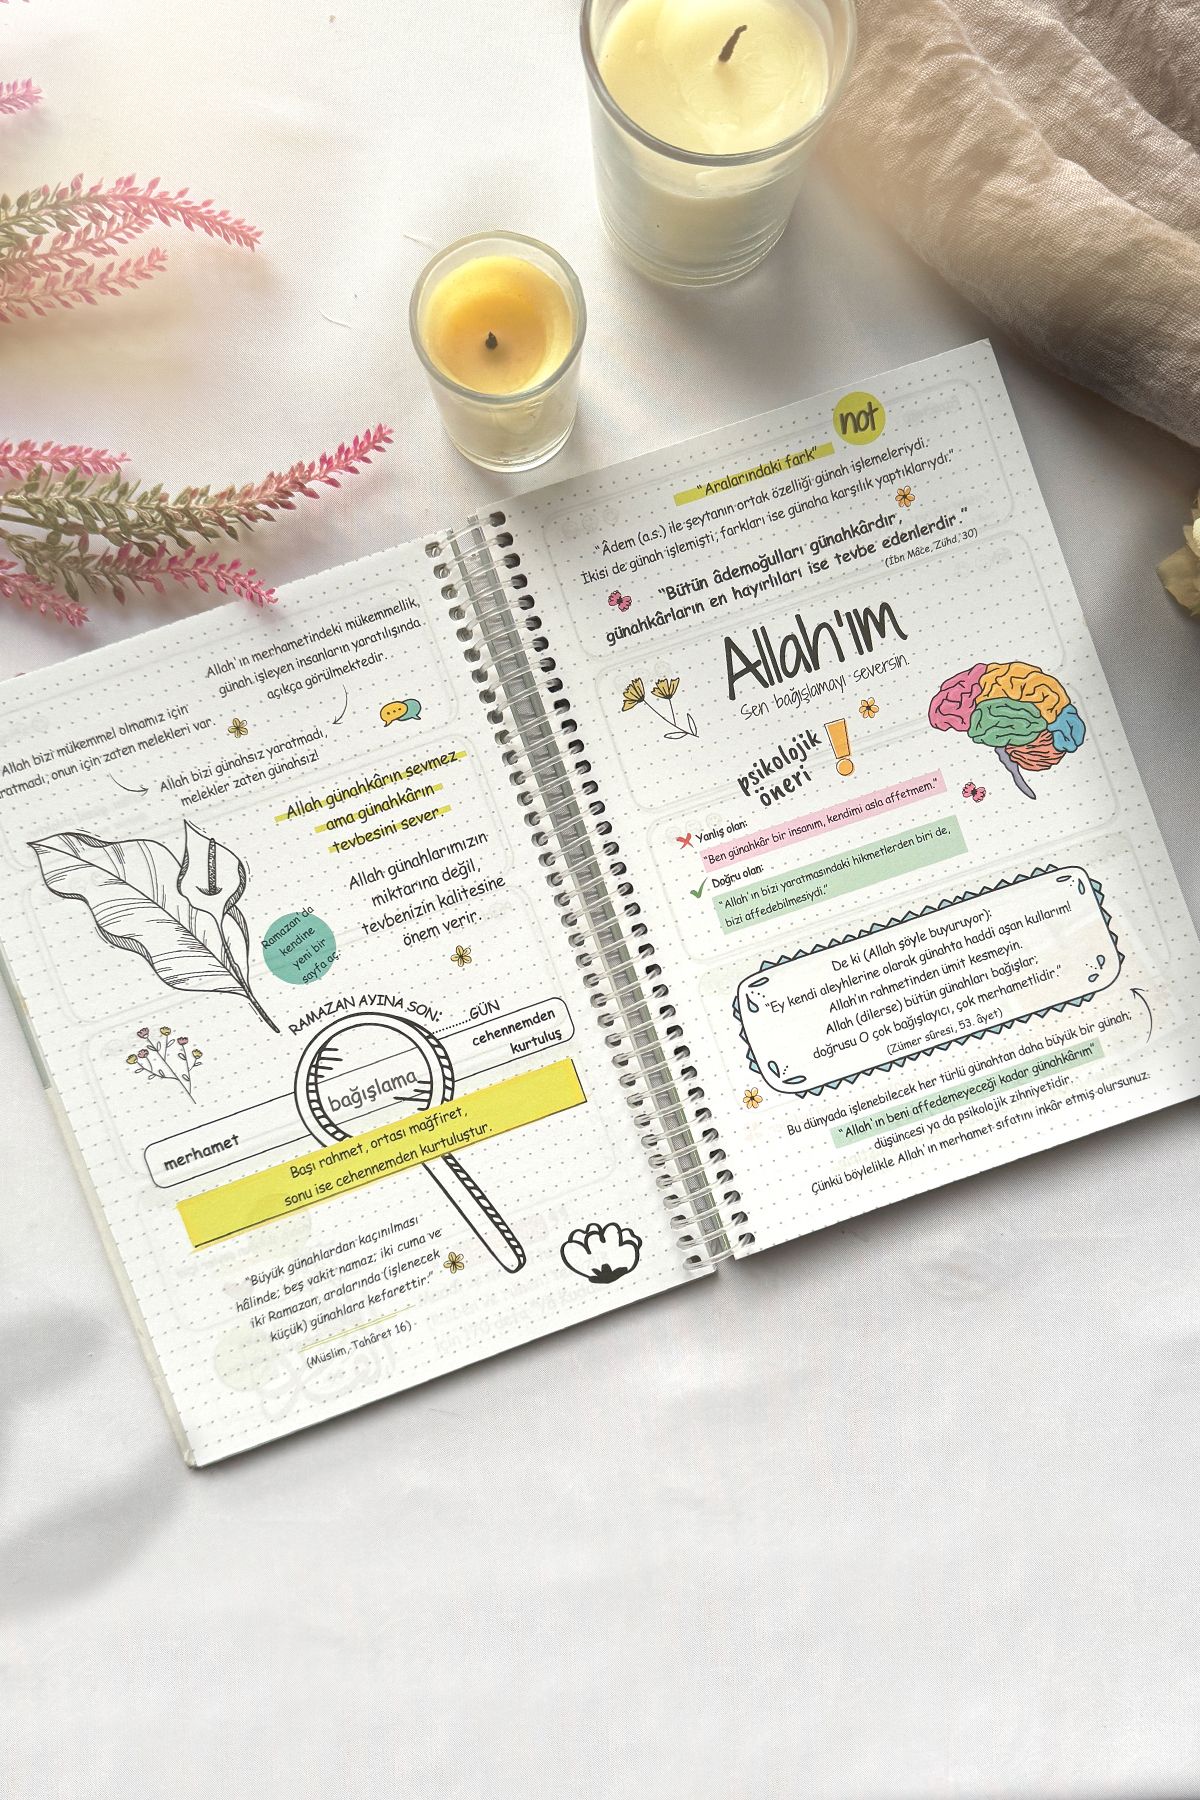 Allah'ın merhametindeki mükemmellik,
günah işleyen insanların yaratılışında
açıkça görülmektedir.
Allah bizi mükemmel olmamız için
yaratmadı; onun için zaten melekleri var.
Allah bizi günahsız yaratmadı,
melekler zaten günahsız!
Allah günahkârın sevmez
ama günahkârın
tevbesini sever.
Allah günahlarımızın
miktarına değil,
tevbenizin kalitesine
önem verir.
Ramazan'da
kendine
yeni bir
sayfa aç.
RAMAZAN AYINA SON:
..........GÜN
cehennemden
kurtuluş
bağışlama
merhamet
Başı rahmet, ortası mağfiret,
sonu ise cehennemden kurtuluştur.
"Büyük günahlardan kaçınılması
hâlinde; beş vakit namaz; iki cuma ve
iki Ramazan, aralarında (işlenecek
küçük) günahlara kefarettir."
(Müslim, Tahâret 16)
not
"Aralarındaki fark"
"Âdem (a.s.) ile şeytanın ortak özelliği günah işlemeleriydi.
İkisi de günah işlemişti; farkları ise günaha karşılık yaptıklarıydı."
"Bütün âdemoğulları günahkârdır,
günahkârların en hayırlıları ise tevbe edenlerdir."
(İbn Mâce, Zühd, 30)
Allah'ım
Sen bağışlamayı seversin.
psikolojik
öneri
Yanlış olan:
"Ben günahkâr bir insanım, kendimi asla affetmem."
Doğru olan:
"Allah'ın bizi yaratmasındaki hikmetlerden biri de,
bizi affedebilmesiydi."
De ki (Allah şöyle buyuruyor):
"Ey kendi aleyhlerine olarak günahta haddi aşan kullarım!
Allah'ın rahmetinden ümit kesmeyin.
Allah (dilerse) bütün günahları bağışlar;
doğrusu O çok bağışlayıcı, çok merhametlidir."
(Zümer sûresi, 53. âyet)
Bu dünyada işlenebilecek her türlü günahtan daha büyük bir günah;
"Allah'ın beni affedemeyeceği kadar günahkârım"
düşüncesi ya da psikolojik zihniyetidir.
Çünkü böylelikle Allah'ın merhamet sıfatını inkâr etmiş olursunuz.